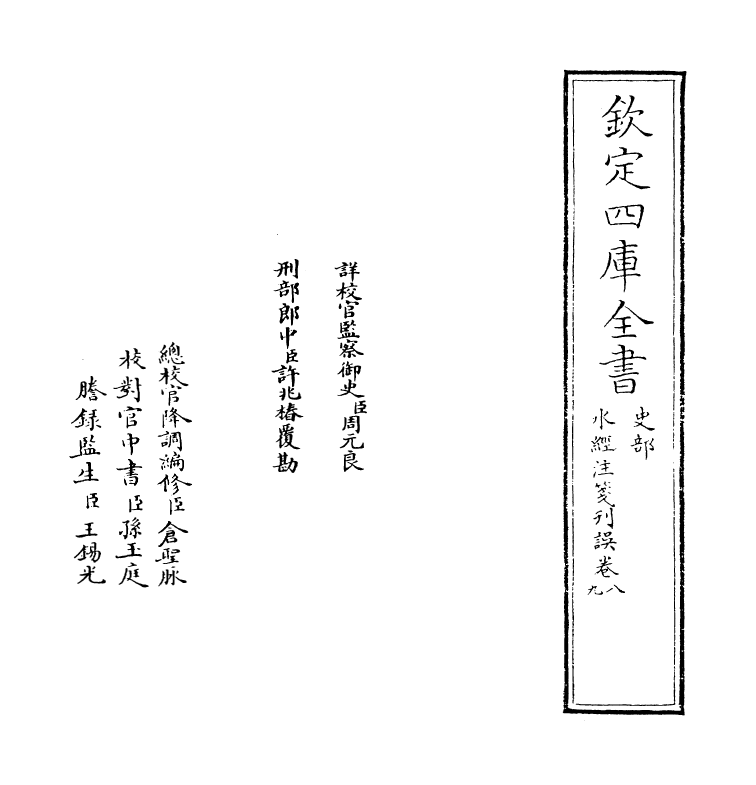 欽定四庫全書
史部
水經注箋刊誤卷八
九
詳校官監察御史臣周元良
刑部郎中臣許兆椿覆勘
總校官降調編修臣倉聖脉
校對官中書臣孫玉庭
謄録監生臣王錫光